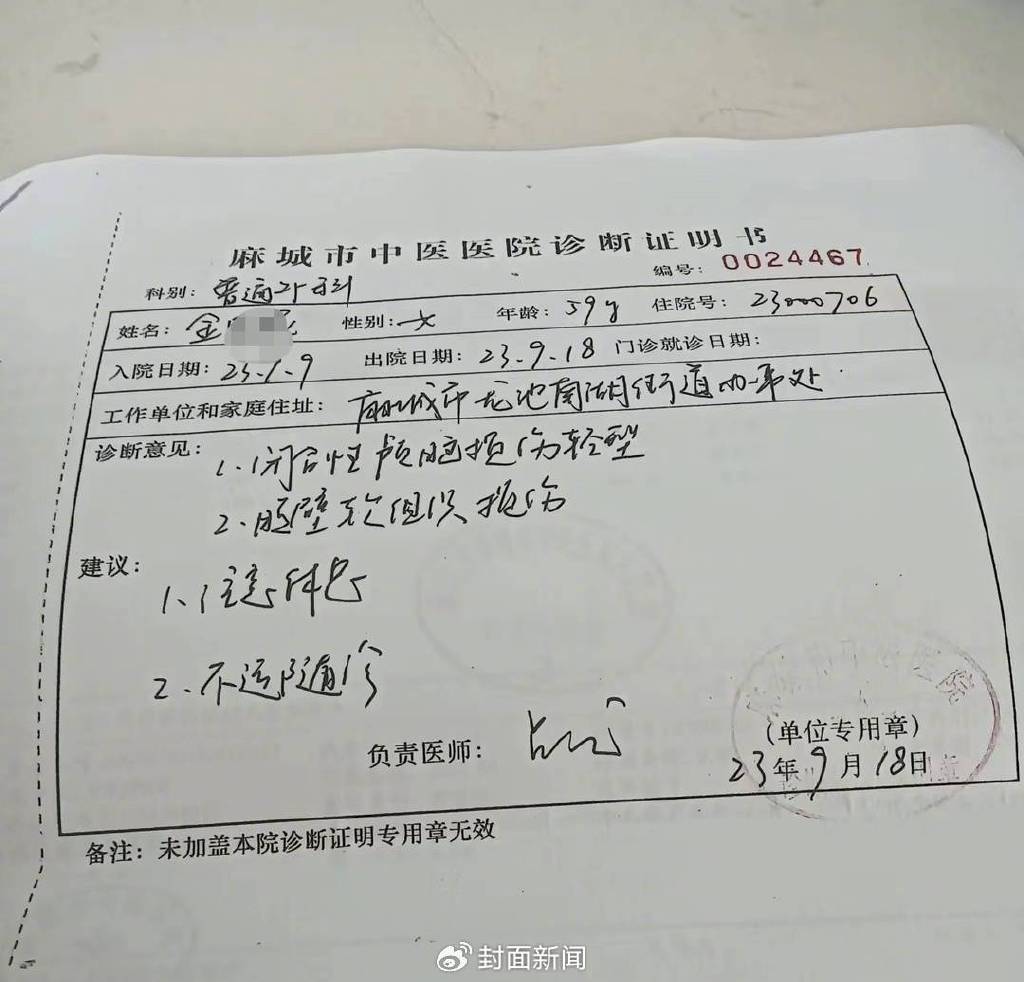 麻城市中医医院诊断证明书
编号：0024467
科别：普通外科
姓名：金 性别：女 年龄：59y 住院号：23000706
入院日期：23.1.9 出院日期：23.9.18 门诊就诊日期：
工作单位和家庭住址：麻城市龙池南湖街道办事处
诊断意见：1.闭合性颅脑损伤轻型
2.腹壁软组织损伤
建议：
1、注意休息
2.不适随诊
负责医师：
（单位专用章）
23年9月18日
备注：未加盖本院诊断证明专用章无效
封面新闻